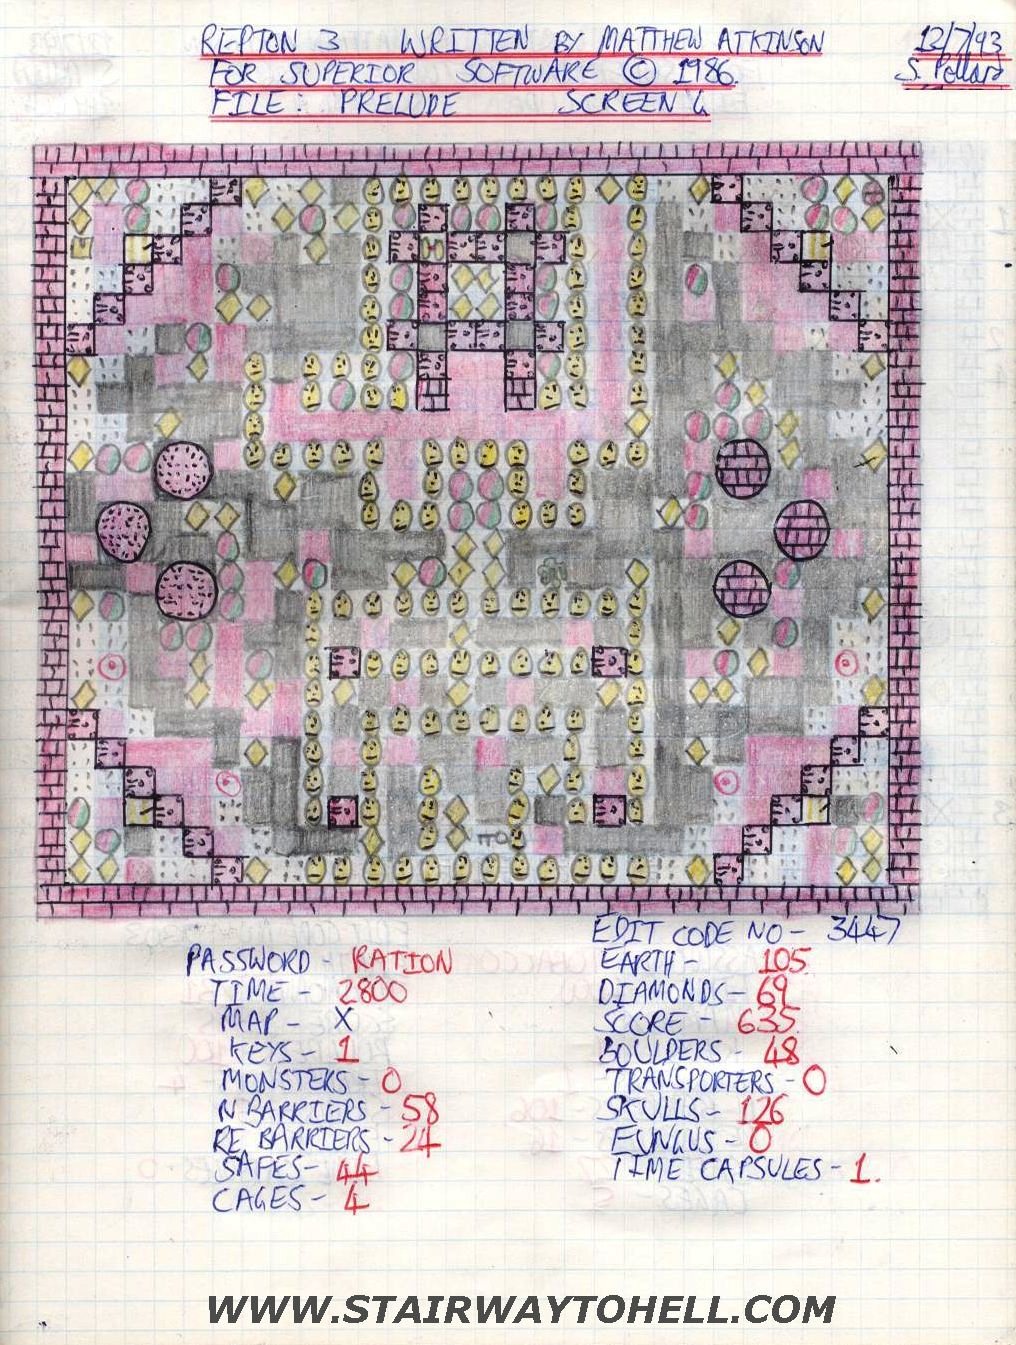 REPTON 3 WRITTEN BY MATTHEW ATKINSON 12/7/93
FOR SUPERIOR SOFTWARE © 1986. S. Pollard
FILE: PRELUDE SCREEN 4
EDIT CODE NO - 3447
PASSWORD - RATION
TIME - 2800
MAP - X
KEYS - 1
MONSTERS - 0
N BARRIERS - 58
RE BARRIERS - 24
SAFES - 44
CAGES - 4
EARTH - 105
DIAMONDS - 69
SCORE - 635
BOULDERS - 48
TRANSPORTERS - 0
SKULLS - 126
FUNGUS - 0
TIME CAPSULES - 1.
WWW.STAIRWAYTOHELL.COM